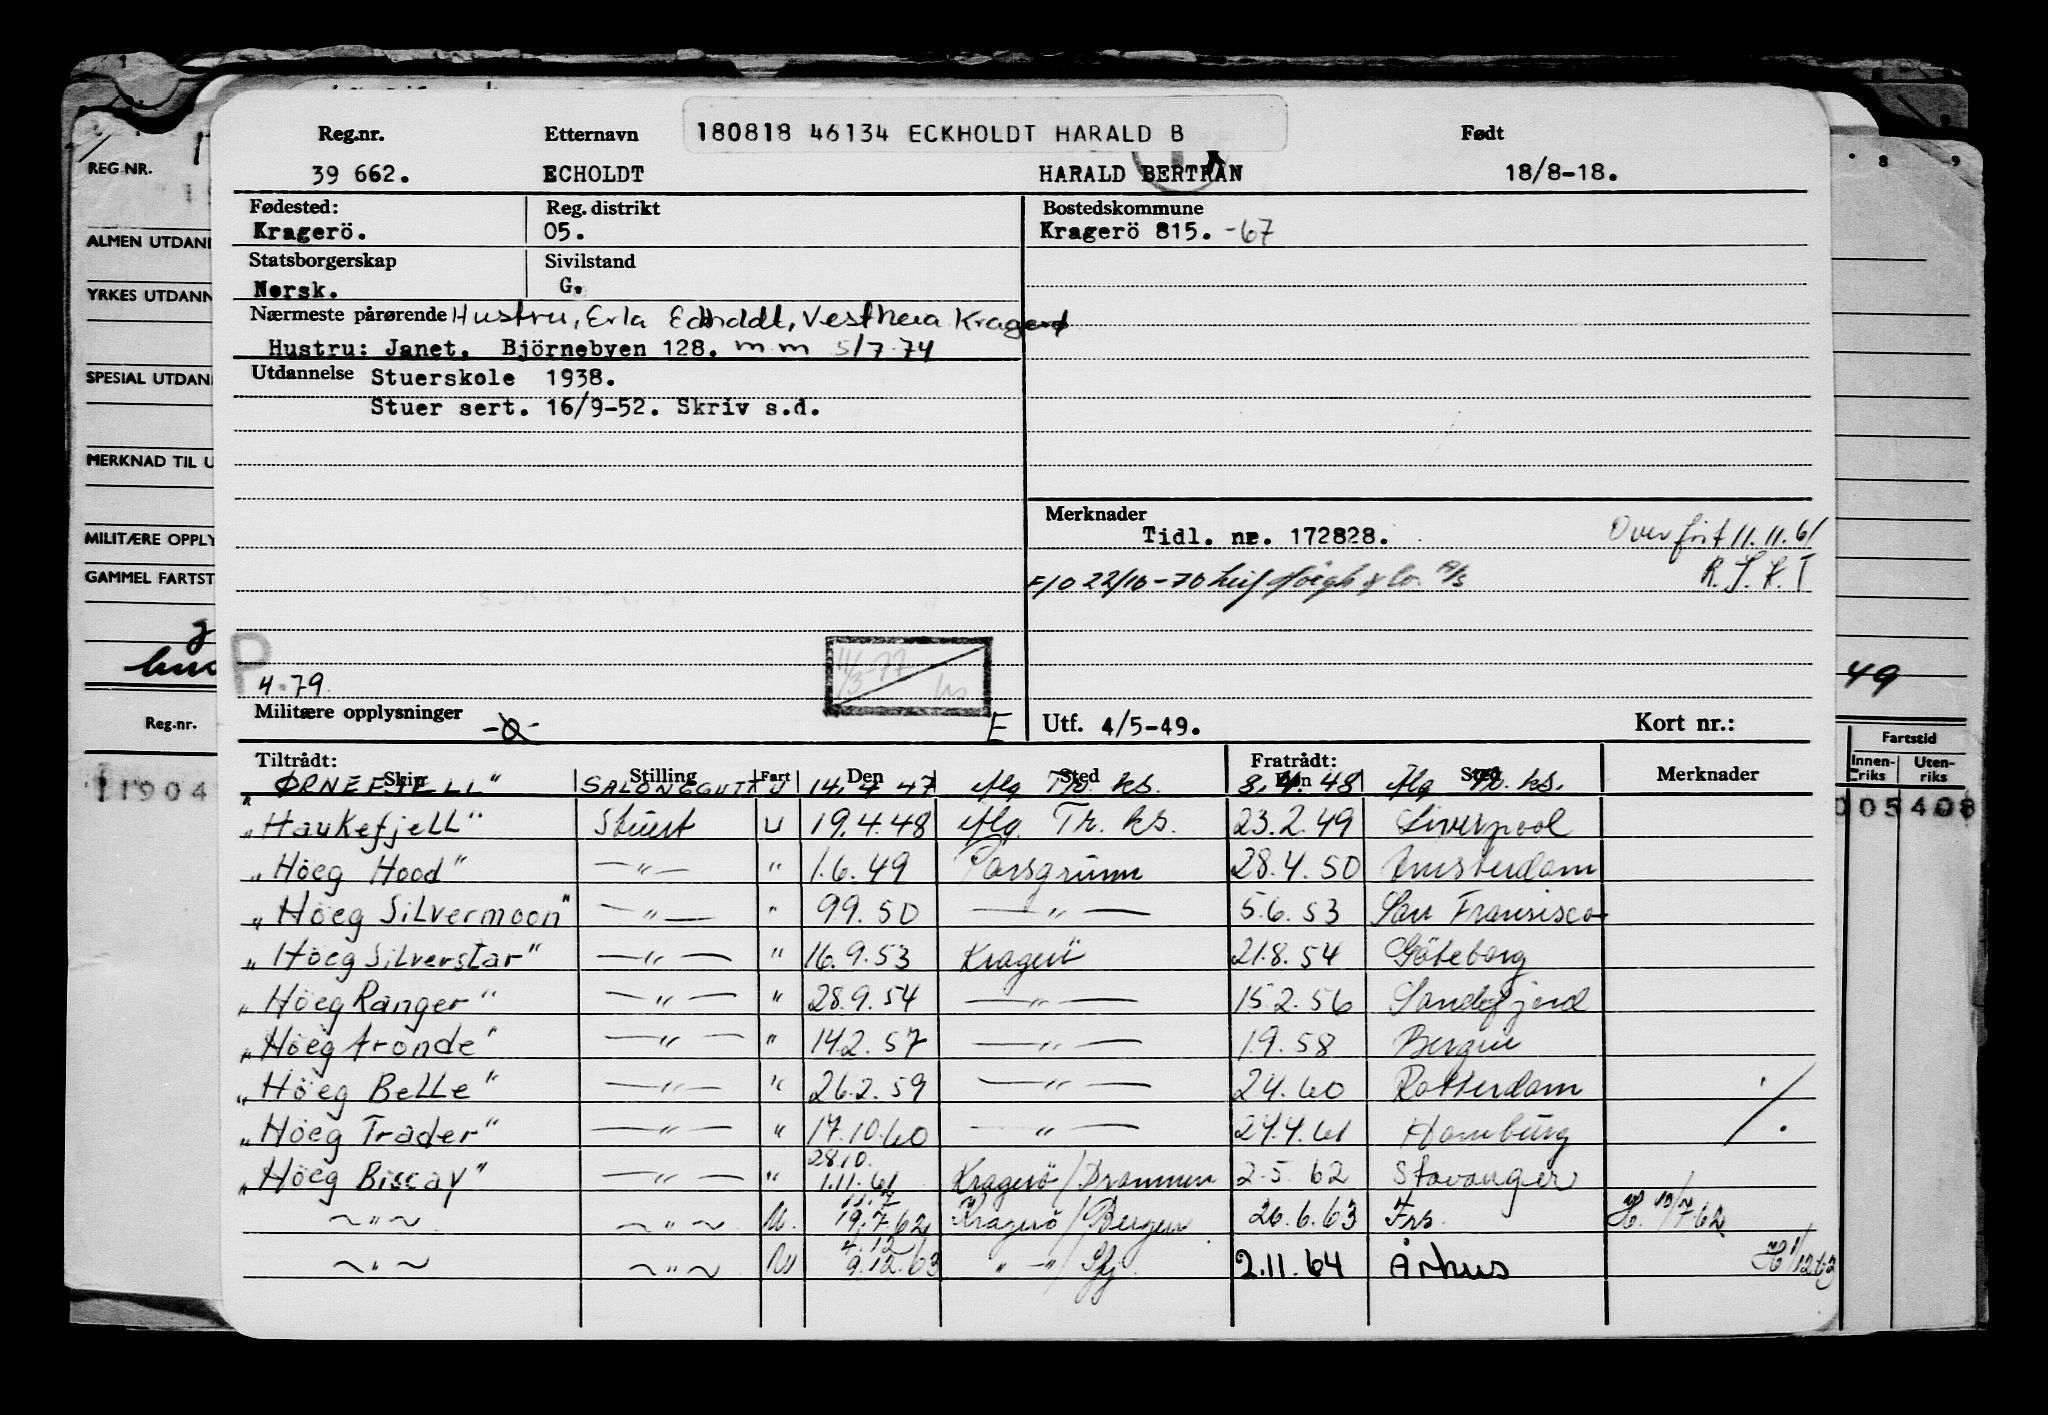 Reg.nr. Etternavn 180818 46134 ECKHOLDT HARALD B Født
39 662. ECHOLDT HARALD BERTRAN 18/8-18.
Fødested: Reg. distrikt Bostedskommune
Kragerö. 05. Kragerö 815. -67
Statsborgerskap Sivilstand
Norsk. G.
Nærmeste pårørende Hustru, Erla Echoldt, Vestheia Kragerø
Hustru: Janet. Björnebyen 128. m m 5/7 74
Utdannelse Stuerskole 1938.
Stuer sert. 16/9-52. Skriv s.d.
Merknader
Tidl. nr. 172828. Overført 11.11.61
F/O 22/10-70 Leif Höegh & Co. A/S
P 4.79
11/3-77
Militære opplysninger -0- E Utf. 4/5-49. Kort nr.:
Tiltrådt: Fratrådt:
Skip Stilling Fart Den Sted Den Sted Merknader
"ØRNEFJELL" SALONGGUTT U 14.4 47 Alg Tr. ks. 8.4.48 Alg Tr. ks.
"Haukefjell" Stuert U 19.4.48 Alg Tr. ks. 23.2.49 Liverpool
"Höeg Hood" —"— " 1.6.49 Porsgrunn 28.4.50 Amsterdam
"Höeg Silvermoon" —"— " 9.9.50 —"— 5.6.53 San Fransisco
"Höeg Silverstar" —"— " 16.9.53 Kragerö 21.8.54 Göteborg
"Höeg Ranger" —"— " 28.9.54 —"— 15.2.56 Sandefjord
"Höeg Aronde" —"— " 14.2.57 —"— 1.9.58 Bergen
"Höeg Belle" —"— " 26.2.59 —"— 2.4.60 Rotterdam
"Höeg Trader" —"— " 17.10.60 —"— 27.4.61 Hamburg
"Höeg Biscay" —"— " 28.10. 1.11.61 Kragerö/Drammen 2.5.62 Stavanger
~"~ ~"~ U. 11.7 19.7.62 Kragerö/Bergen 26.6.63 Frs.
~"~ ~"~ U 4.12 9.12.63 " —"/Sfj. 2.11.64 Århus
REG NR.
ALMEN UTDAN
YRKES UTDANN
SPESIAL UTDAN
MERKNAD TIL U
MILITÆRE OPPLY
GAMMEL FARTST
Reg.nr.
11904
8 9
49
Fartstid
Innen-riks Uten-riks
005408